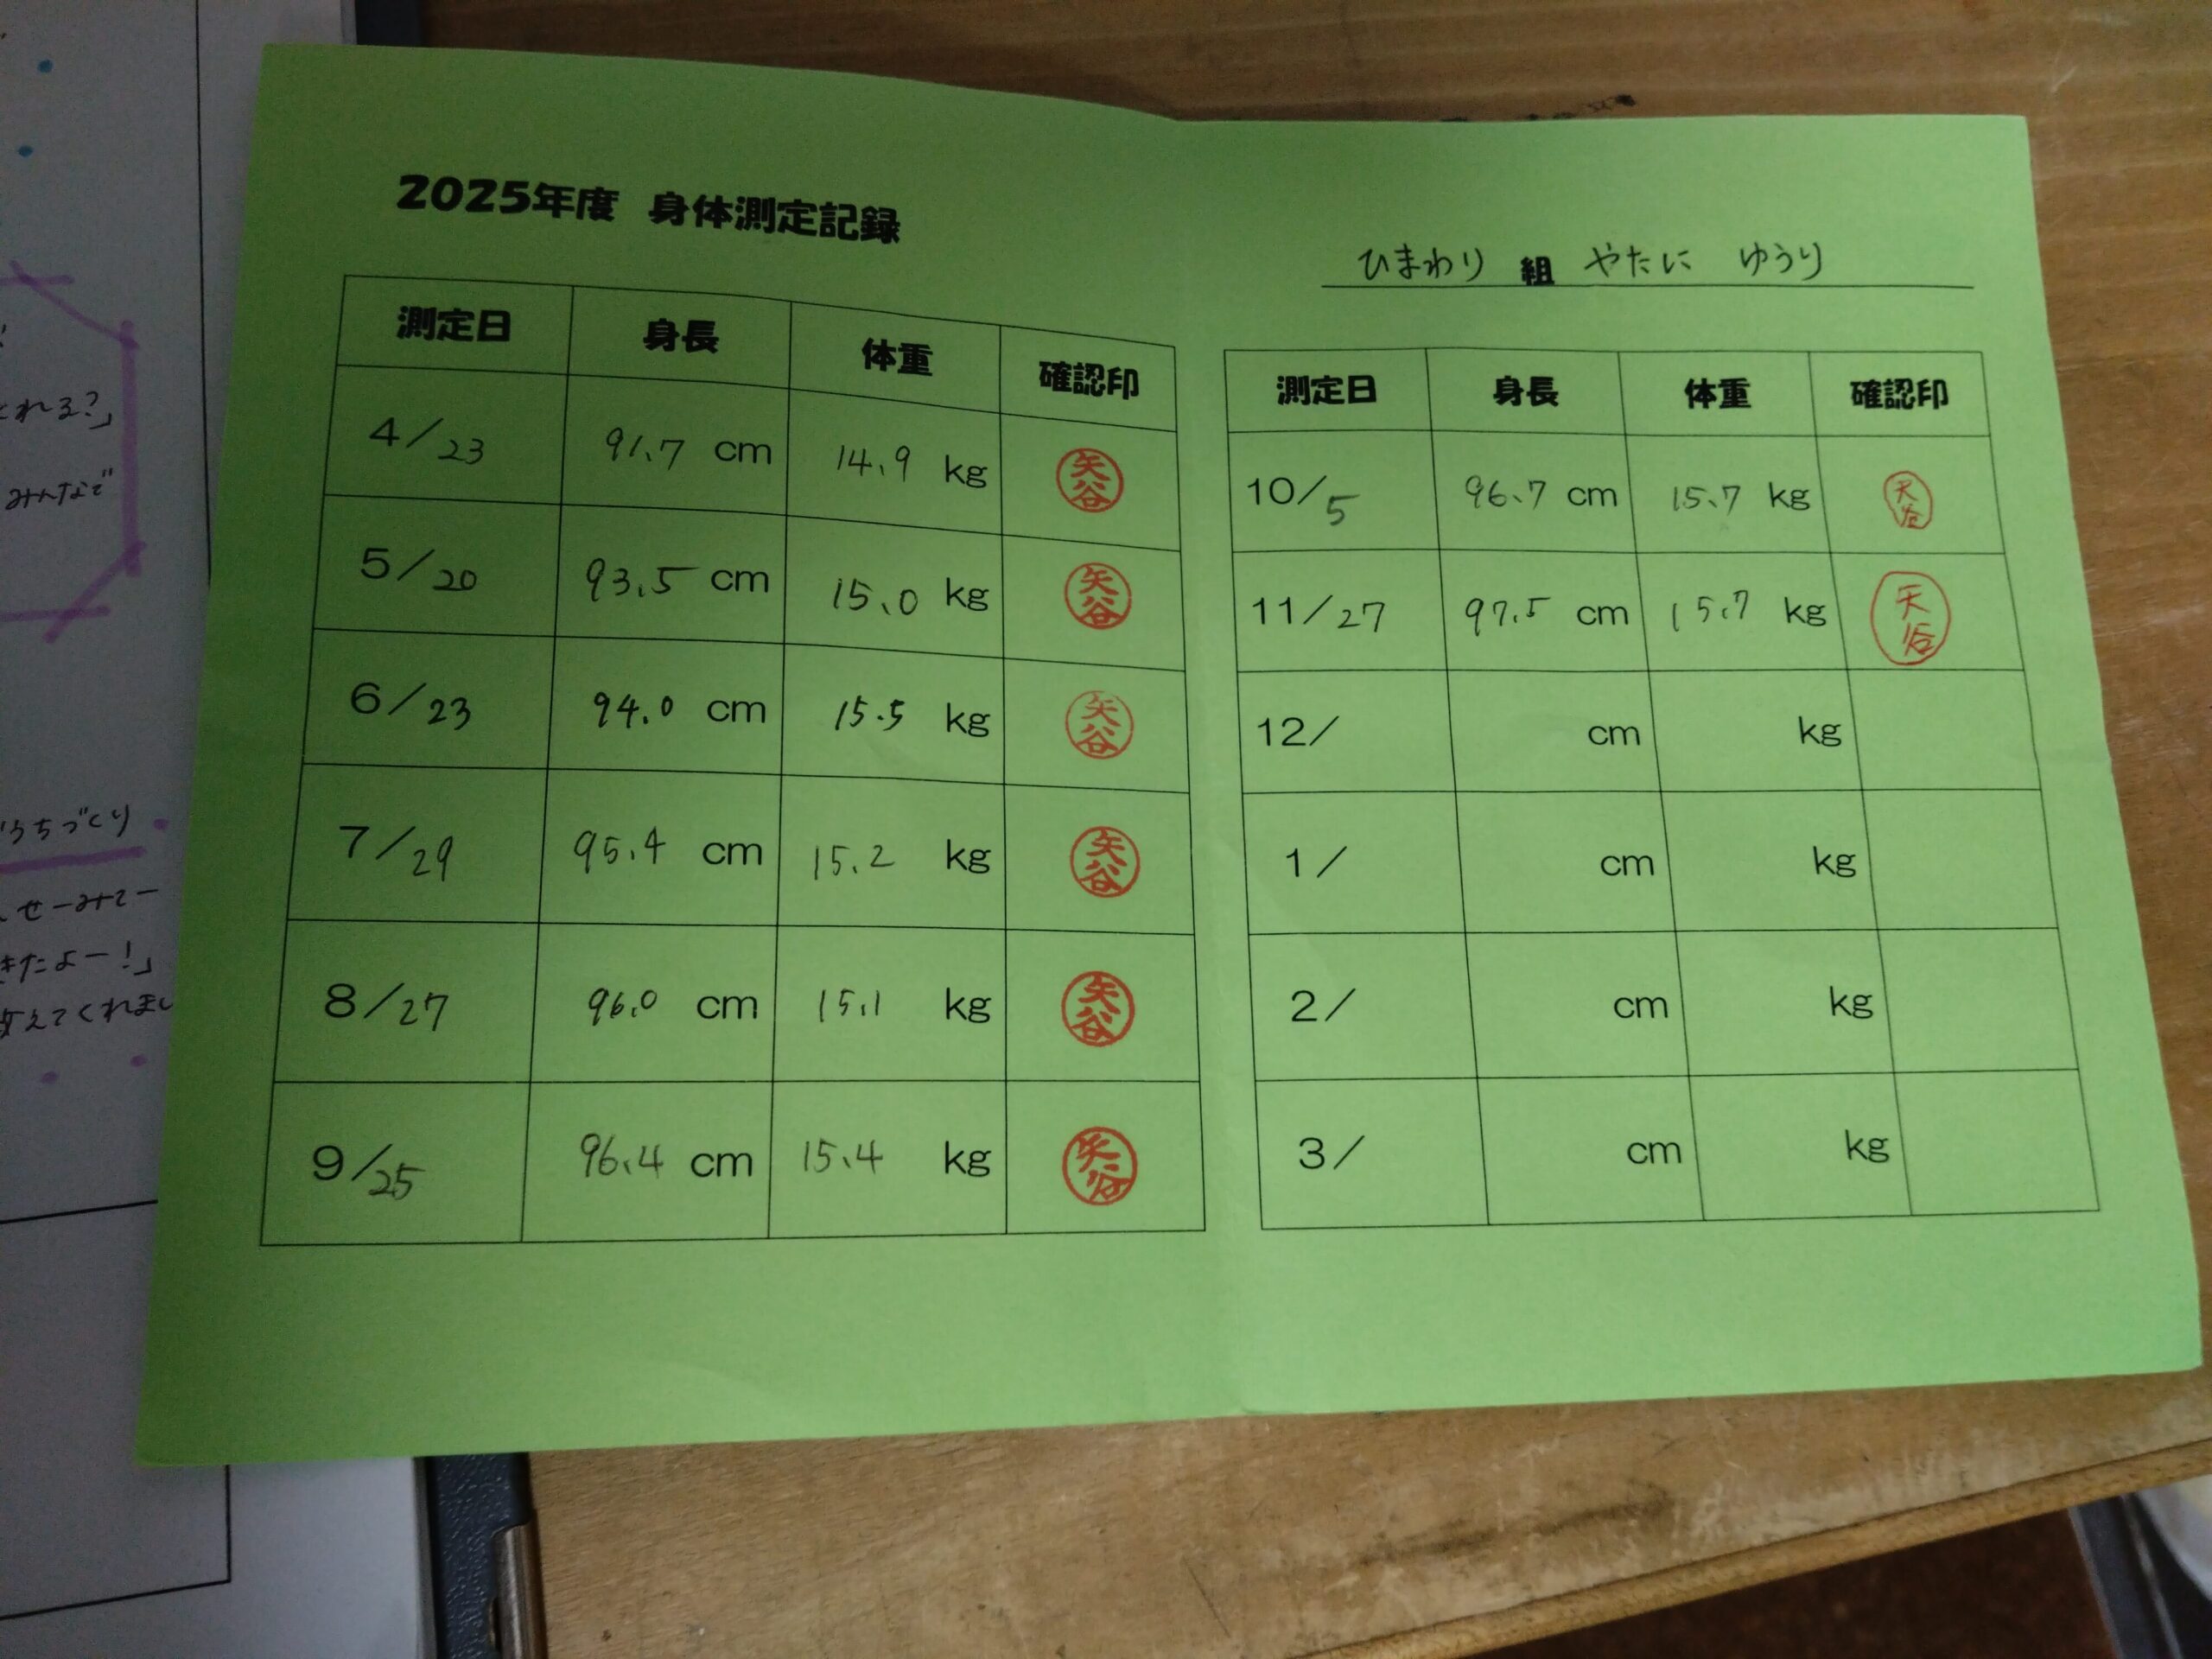 2025年度 身体測定記録
ひまわり 組 やたに ゆうり
測定日 身長 体重 確認印
4/23 91.7 cm 14.9 kg 矢谷
5/20 93.5 cm 15.0 kg 矢谷
6/23 94.0 cm 15.5 kg 矢谷
7/29 95.4 cm 15.2 kg 矢谷
8/27 96.0 cm 15.1 kg 矢谷
9/25 96.4 cm 15.4 kg 矢谷
測定日 身長 体重 確認印
10/5 96.7 cm 15.7 kg 矢谷
11/27 97.5 cm 15.7 kg 矢谷
12/ cm kg
1/ cm kg
2/ cm kg
3/ cm kg
くれる?」
みんなで
うちづくり
せーみてー
きたよー!」
教えてくれまし